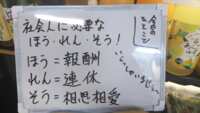 今日の
ひとこと
社会人に必要な
ほう・れん・そう！
ほう＝報酬
れん＝連休
そう＝相思相愛